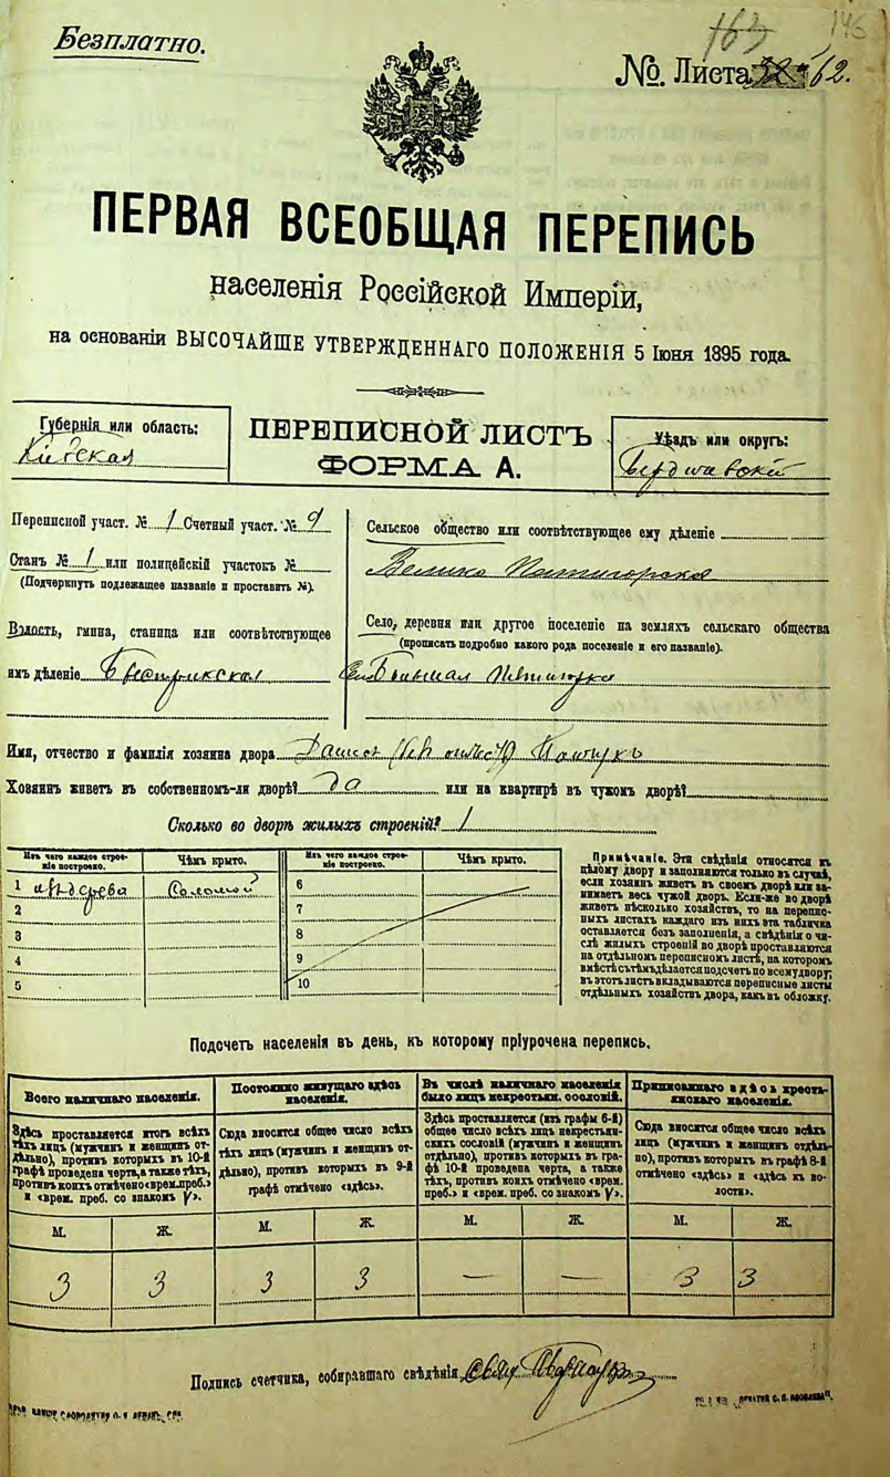 Безплатно.
163 146
№. Листа 62.
ПЕРВАЯ ВСЕОБЩАЯ ПЕРЕПИСЬ
населенія Россійской Имперіи,
на основаніи ВЫСОЧАЙШЕ УТВЕРЖДЕННАГО ПОЛОЖЕНІЯ 5 Іюня 1895 года.
Губернія или область:
Кіевская
ПЕРЕПИСНОЙ ЛИСТЪ
ФОРМА А.
Уѣздъ или округъ:
Бердичевскій
Переписной участ. № 1 Счетный участ. № 9
Станъ № 1 или полицейскій участокъ №
(Подчеркнуть подлежащее названіе и проставить №).
Волость, гмина, станица или соотвѣтствующее
имъ дѣленіе
Сельское общество или соотвѣтствующее ему дѣленіе
Велико Пятигорское
Село, деревня или другое поселеніе на земляхъ сельскаго общества
(прописать подробно какого рода поселеніе и его названіе).
Большая Пятигорка
Имя, отчество и фамилія хозяина двора
Хозяинъ живетъ въ собственномъ-ли дворѣ? Да или на квартирѣ въ чужомъ дворѣ?
Сколько во дворѣ жилыхъ строеній? 1
Изъ чего каждое строеніе построено.
Чѣмъ крыто.
Изъ чего каждое строеніе построено.
Чѣмъ крыто.
1 изъ дерева Соломой 6
2 7
3 8
4 9
5 10
Примѣчаніе. Эти свѣдѣнія относятся къ
цѣлому двору и заполняются только въ случаѣ,
если хозяинъ живетъ въ своемъ дворѣ или за-
нимаетъ весь чужой дворъ. Если-же во дворѣ
живетъ нѣсколько хозяйствъ, то на перепис-
ныхъ листахъ каждаго изъ нихъ эта табличка
оставляется безъ заполненія, а свѣдѣнія о чи-
слѣ жилыхъ строеній во дворѣ проставляются
на отдѣльномъ переписномъ листѣ, на которомъ
вмѣстѣ съ тѣмъ дѣлается подсчетъ по всему двору;
въ этотъ листъ вкладываются переписные листы
отдѣльныхъ хозяйствъ двора, какъ въ обложку.
Подсчетъ населенія въ день, къ которому пріурочена перепись.
Всего наличнаго населенія.
Здѣсь проставляется итогъ всѣхъ
тѣхъ лицъ (мужчинъ и женщинъ от-
дѣльно), противъ которыхъ въ 10-й
графѣ проведена черта, а также тѣхъ,
противъ коихъ отмѣчено «врем. преб.»
и «врем. преб. со знакомъ V».
Постоянно живущаго здѣсь
населенія.
Сюда вносится общее число всѣхъ
тѣхъ лицъ (мужчинъ и женщинъ от-
дѣльно), противъ которыхъ въ 9-й
графѣ отмѣчено «здѣсь».
Въ числѣ наличнаго населенія
было лицъ некрестьян. сословій.
Здѣсь проставляется (изъ графы 6-й)
общее число всѣхъ лицъ некрестьян-
скихъ сословій (мужчинъ и женщинъ
отдѣльно), противъ которыхъ въ гра-
фѣ 10-й проведена черта, а также
тѣхъ, противъ коихъ отмѣчено «врем.
преб.» и «врем. преб. со знакомъ V».
Приписаннаго здѣсь кресть-
янскаго населенія.
Сюда вносится общее число всѣхъ
лицъ (мужчинъ и женщинъ отдѣль-
но), противъ которыхъ въ графѣ 8-й
отмѣчено «здѣсь» и «здѣсь къ во-
лости».
М. Ж. М. Ж. М. Ж. М. Ж.
3 3 3 3 — — 3 3
Подпись счетчика, собиравшаго свѣдѣнія